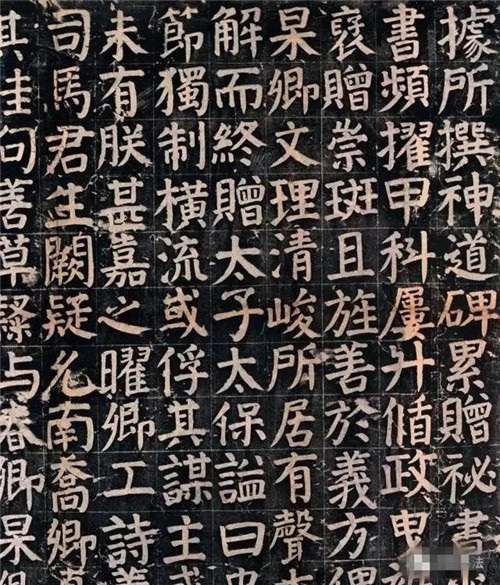 據所撰神道碑累贈祕書
書頻擢甲科屢升偱政
襃贈崇斑且旌善於義方俾
杲卿文理清峻所居有聲
解而終贈太子太保謚曰忠
節獨制橫流或俘其謀主或
未有朕甚嘉之曜卿工詩善
司馬君生闕疑允南喬卿真
其佳句善草隸与春卿杲
法